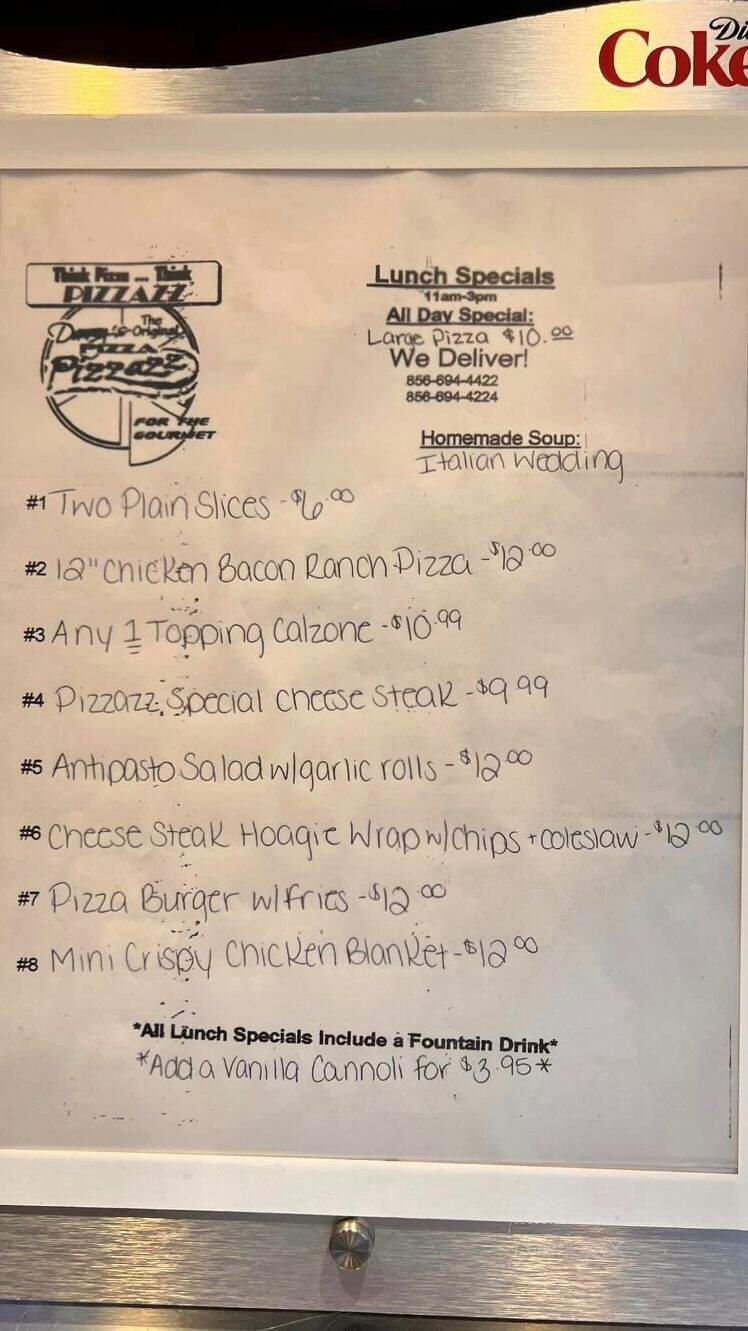 Diet
Coke
Think Pizza ... Think
PIZZAZZ
The
Danny's Original
PIZZA
Pizzazz
FOR THE
GOURMET
Lunch Specials
11am-3pm
All Day Special:
Large Pizza $10.00
We Deliver!
856-694-4422
856-694-4224
Homemade Soup:
Italian Wedding
#1 Two Plain Slices - $6.00
#2 12" Chicken Bacon Ranch Pizza - $12.00
#3 Any 1 Topping Calzone - $10.99
#4 Pizzazz Special Cheese Steak - $9.99
#5 Antipasto Salad w/garlic rolls - $12.00
#6 Cheese Steak Hoagie Wrap w/chips + coleslaw - $12.00
#7 Pizza Burger w/fries - $12.00
#8 Mini Crispy Chicken Blanket - $12.00
*All Lunch Specials Include a Fountain Drink*
*Add a Vanilla Cannoli for $3.95*